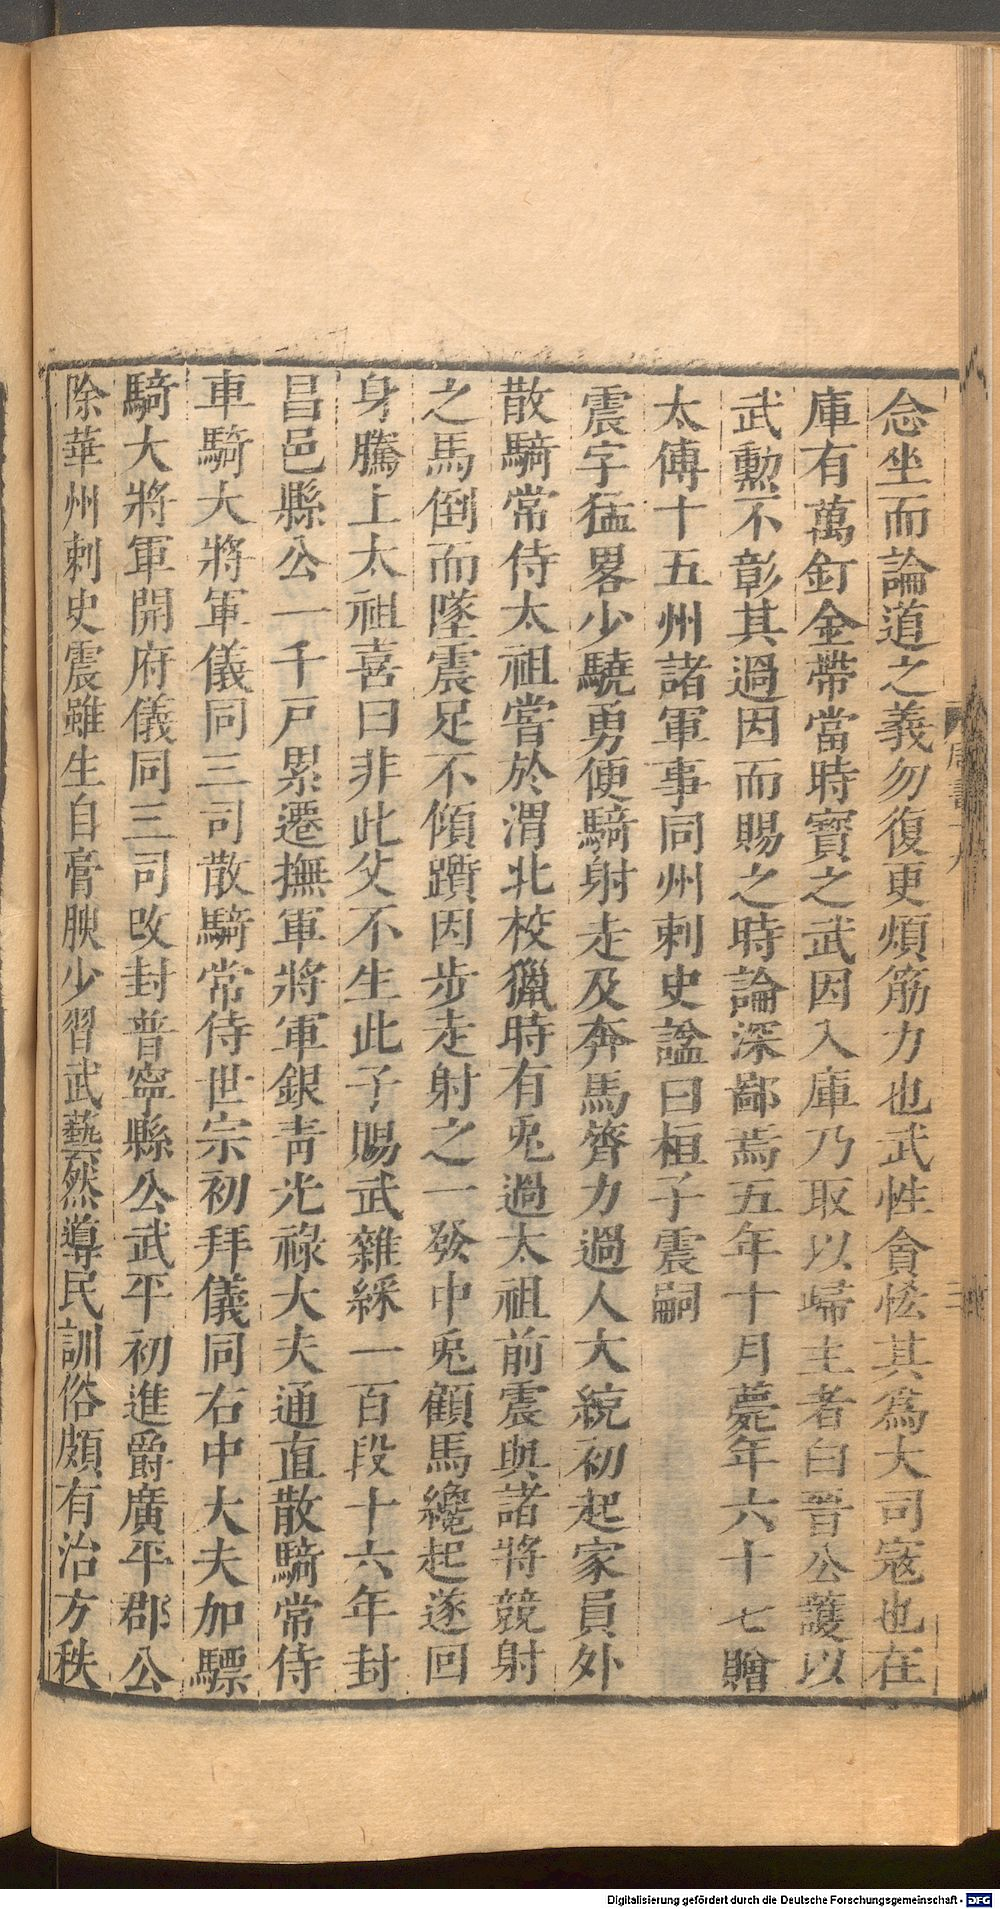 念坐而論道之義勿復更煩筋力也武性貪恡其爲大司寇也在
庫有萬釘金帶當時寶之武因入庫乃取以歸主者白晉公護以
武勲不彰其過因而賜之時論深鄙焉五年十月薨年六十七贈
太傅十五州諸軍事同州刺史謚曰桓子震嗣
震字猛畧少驍勇便騎射走及奔馬膂力過人大統初起家員外
散騎常侍太祖嘗於渭北校獵時有兎過太祖前震與諸將競射
之馬倒而墜震足不傾躓因步走射之一發中兎顧馬纔起遂回
身騰上太祖喜曰非此父不生此子賜武雜綵一百段十六年封
昌邑縣公一千戸累遷撫軍將軍銀青光祿大夫通直散騎常侍
車騎大將軍儀同三司散騎常侍世宗初拜儀同右中大夫加驃
騎大將軍開府儀同三司改封普寧縣公武平初進爵廣平郡公
除華州刺史震雖生自膏腴少習武藝然導民訓俗頗有治方秩
周書十九
Digitalisierung gefördert durch die Deutsche Forschungsgemeinschaft - DFG